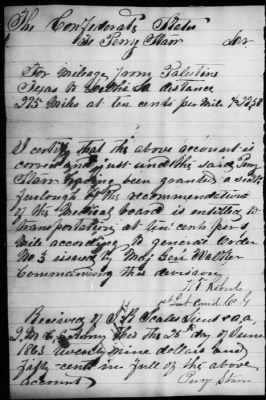 The Confederate States
To Perry Starr Dr
For Mileage from Palestine
Texas to La distance
225 Miles at ten cents per mile $22.50
I certify that the above account is
correct and just and the said Perry
Starr having been granted a sick
furlough by the recommendations
of the Medical board is entitled to
transportation at ten cents per
mile according to General Order
No 3 issued by Maj Gen Walker
Commanding this division
Lt Comd Co G
Recieved of
C. S. Army this the 25th day of June
1863 twenty nine dollars and
fifty cents in full of the above
account Perry Starr